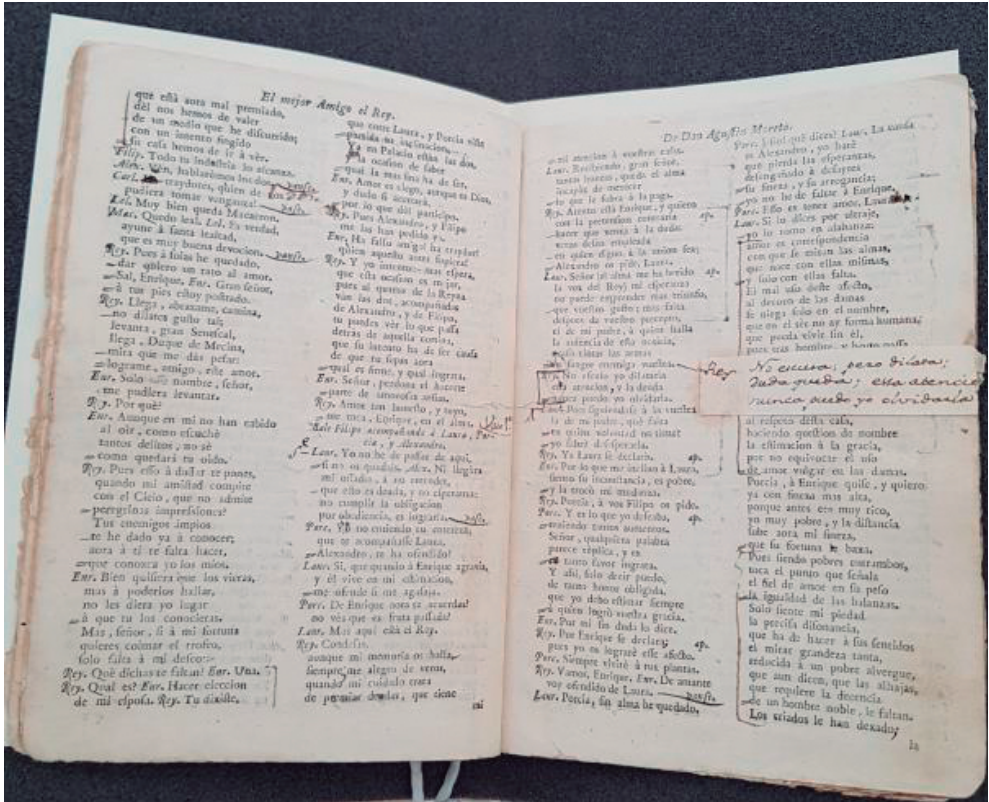 El mejor Amigo el Rey.
que està aora mal premiado,
dèl nos hemos de valer
de un medio que he discurrido;
con un intento fingido
su casa hemos de ir à vèr.
Filip. Todo tu industria lo alcanza.
Alex. Ven, hablarèmos los dos. pausa.
Carl. traydores, quien de los
pudiera tomar venganza! pausa.
Lel. Muy bien queda Macarron.
Mac. Quedo leal. Lel. Es verdad,
ayune à santa lealtad,
que es muy buena devocion. pausa.
Rey. Pues à solas he quedado,
dar quiero un rato al amor.
Sal, Enrique. Enr. Gran señor,
à tus pies estoy postrado.
Rey. Llega, abrazame, camina,
no dilates gusto tal;
levanta, gran Senescal,
llega, Duque de Mecina,
mira que me dàs pesar:
lograme, amigo, este amor.
Enr. Solo nombre, señor,
me pudiera levantar.
Rey. Por què?
Enr. Aunque en mi no han cabido
al oir, como escuchè
tantos delitos, no sè
como quedarà tu oido.
Rey. Pues esso à dudar te pones,
quando mi amistad compite
con el Cielo, que no admite
peregrinas impressiones?
Tus enemigos impios
te he dado yà à conocer;
aora à tì te falta hacer,
que conozca yo los mios.
Enr. Bien quisiera que los vieras,
mas à poderlos hallar,
no les diera yo lugar
à que tu los conocieras.
Mas, señor, si à mi fortuna
quieres colmar el trofeo,
solo falta à mi deseo:-
Rey. Què dichas te faltan? Enr. Una.
Rey. Qual es? Enr. Hacer eleccion
de mi esposa. Rey. Tu dixiste,
que entre Laura, y Porcia viste
partida tu inclinacion.
Ya en Palacio estàn las dos,
y la ocasion de saber
qual la mas fina ha de ser.
Enr. Amor es ciego, aunque es Dios,
y dudo si acertarà,
por lo que dèl participo.
Rey. Pues Alexandro, y Filipo
me las han pedido yà.
Enr. Ha falso amigo! ha traydor!
quien aquesto antes supiera!
Rey. Y yo intento: mas espera,
que esta ocasion es mejor,
pues al quarto de la Reyna
vàn las dos, acompañadas
de Alexandro, y de Filipo,
tu puedes vèr lo que passa
detràs de aquella cortina,
que su intento ha de ser causa
de que tu sepas aora
qual es firme, y qual ingrata.
Enr. Señor, perdona el hacerte
parte de amorosas ansias.
Rey. Amor tan honesto, y tuyo,
me toca, Enrique, en el alma.
Sale Filipo acompañando à Laura, Porcia, y Alexandro.
Laur. Yo no he de passar de aqui,
si no os quedais. Alex. Ni llegàra
mi osadia, à no entender,
que esto es deuda, y no esperanza:
no cumplir la obligacion
por obediencia, es ingratitud. pausa.
Porc. Yo no entiendo tu entereza,
que te acompañasse Laura.
Alexandro, te ha ofendido?
Laur. Sì, que quando à Enrique agravia,
y èl vive en mi corazon,
me ofende si me agasaja.
Porc. De Enrique aora te acuerdas?
no vès que es fruta passada?
Laur. Mas aqui està el Rey.
Rey. Condesas,
aunque mi memoria os halla,
siempre me alegro de veros,
quando mi cuidado trata
de premiar deudas, que tiene
mi
De Don Agustin Moreto.
mi atencion à vuestras casas.
Laur. Recibiendo, gran señor,
tantas honras, queda el alma
incapàz de merecer
lo que le sobra à la paga.
Rey. Atento està Enrique, y quiero
con la pretension contraria ap.
hacer que venza à la duda:
vereis dichosa empleada
en quien digna à la union sea;
Alexandro os pide, Laura.
Laur. Señor (el alma me ha herido ap.
la voz del Rey) mi esperanza
no puede emprender mas triunfo,
que vuestro gusto; mas falta
despues de vuestro precepto,
el de mi padre, à quien halla
la ausencia de esta noticia,
vuestras las armas
de sangre enemiga vuestra.
y la deuda
nunca puedo yo olvidarla.
Rey No escusa, pero dilata;
Duda queda; esta atencion
nunca puedo yo olvidarla
à la vuelta
la de mi padre, què falta
en quien voluntad no tiene
yo saber desesperarla.
Rey. Ya Laura se declara. ap.
Enr. Por lo que me inclino à Laura,
siento su inconstancia, es pobre,
y la trocò mi mudanza.
Rey. Porcia, à vos Filipo os pide.
Porc. Y es lo que yo deseaba, ap.
teniendo tantos aumentos.
Señor, qualquiera palabra
parece rèplica, y es
à tanto favor ingrata.
Y asi, solo decir puedo,
de tanto honor obligada,
que yo debo estimar siempre
à quien logrò vuestra gracia.
Enr. Por mi sin duda lo dice.
Rey. Por Enrique se declara; ap.
pues yo os lograrè esse afecto.
Porc. Siempre vivirè à tus plantas.
Rey. Vamos, Enrique. Enr. De amante
voy ofendido de Laura. pausa.
Laur. Porcia, sin alma he quedado.
Porc. Por què dices? Laur. La causa
es Alexandro, yo harè
que pierda las esperanzas,
desengañado à desayres
su fineza, y su arrogancia;
yo no he de faltar à Enrique.
Porc. Esso es tener amor, Laura.
Laur. Si lo dices por ultraje,
yo lo tomo en alabanza:
amor es correspondencia
con que se miran las almas,
que nace con ellas mismas,
y solo con ellas falta.
El mal uso deste afecto,
al decoro de las damas
se niega solo en el nombre,
que en el sèr no ay forma humana,
que pueda vivir sin èl,
al respeto desta casa,
haciendo question de nombre
la estimacion à la gracia,
por no equivocar el uso
de amor vulgar en las damas.
Porcia, à Enrique quise, y quiero
yà con fineza mas alta,
porque antes era muy rico,
yo muy pobre, y la distancia
sube aora mi fineza,
que su fortuna le baxa.
Pues siendo pobres entrambos,
toca el punto que señala
el fiel de amor en su peso
la igualdad de las balanzas.
Solo siente mi piedad
la precisa disonancia,
que ha de hacer à sus sentidos
el mirar grandeza tanta,
reducida à un pobre alvergue,
que aun dicen, que las alhajas,
que requiere la decencia
de un hombre noble, le faltan.
Los criados le han dexado;
la